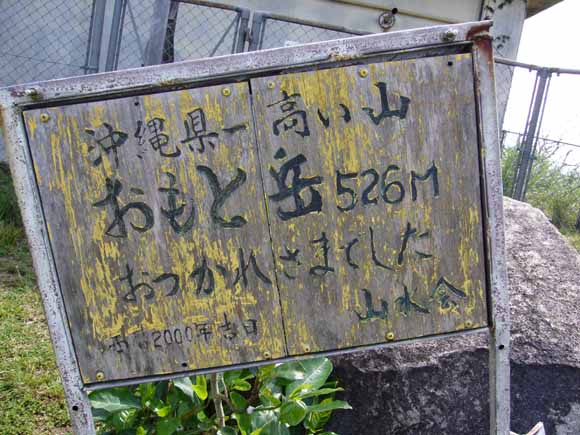 沖縄県一高い山
おもと岳526M
おつかれさまでした
山水会
西 2000年吉日